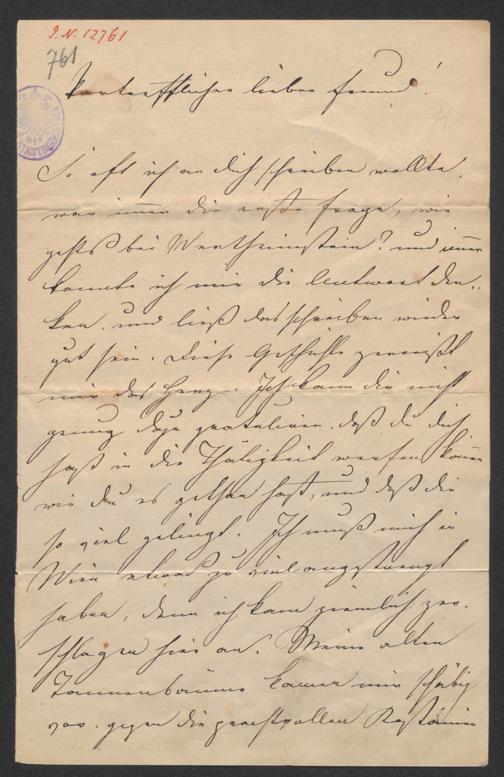 I.N. 12761
761
Vortrefflicher lieber Freund!
So oft ich an dich schreiben wollte,
war immer die erste Frage, wie
gehts bei Wertheimstein? und immer
konnte ich mir die Antwort den-
ken, und ließ das Schreiben wieder
gut sein. Diese Geschichte zerreißt
mir das Herz. Ich kann dir nicht
genug dazu gratuliren, daß du dich
so in die Thätigkeit werfen kannst
wie du es gethan hast, und daß dir
so viel gelingt. Ich muß mich in
Wien etwas zu viel angestrengt
haben, denn ich kam ziemlich zer-
schlagen hier an. Meine alten
Tannenbäume kamen mir schäbig
vor gegen die prachtvollen Kastanien